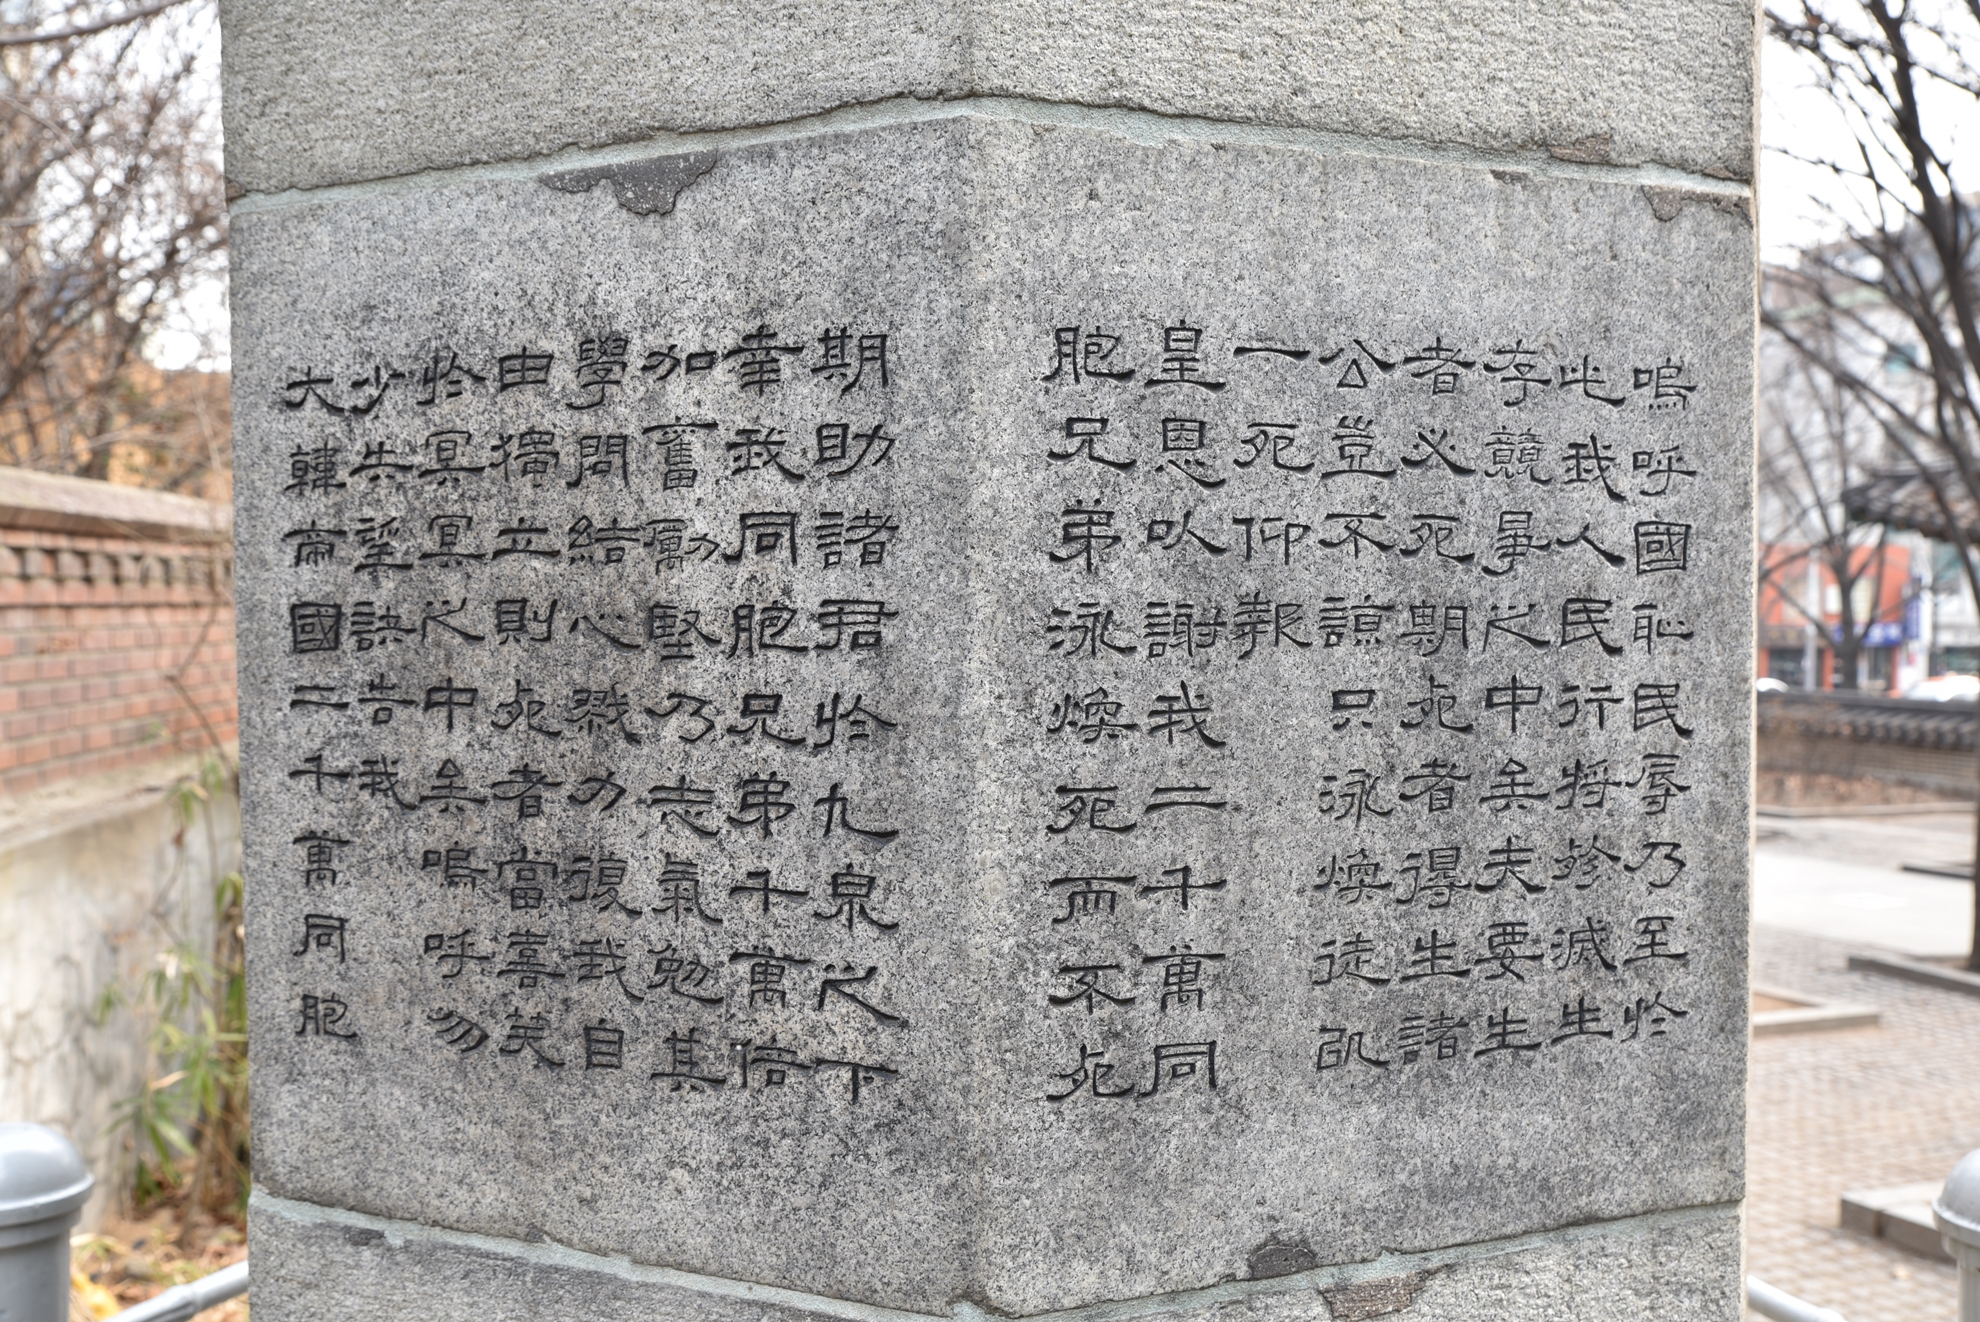 嗚呼國恥民辱乃至於
此我人民行將殄滅生
存競爭之中矣夫要生
者必死期死者得生諸
公豈不諒只泳煥徒以
一死仰報
皇恩以謝我二千萬同
胞兄弟泳煥死而不死
期助諸君於九泉之下
幸我同胞兄弟千萬倍
加奮勵堅乃志氣勉其
學問結心戮力復我自
由獨立則死者當喜笑
於冥冥之中矣嗚呼勿
少失望訣告我
大韓帝國二千萬同胞